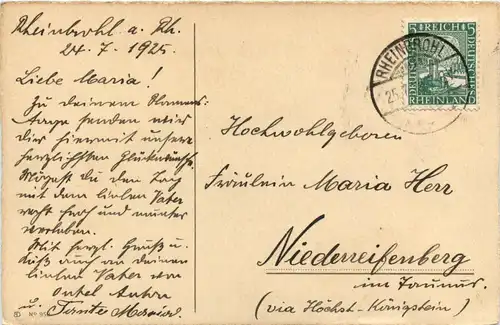 Rheinbrohl a. Rh.
24. 7. 1925.
Liebe Maria!
Zu deinem Namens-
tage senden wir
dir hiermit unsere
herzlichsten Glückwünsche.
Mögest du den Tag
mit dem lieben Vater
recht froh und munter
verleben.
Mit herzl. Gruß u.
Kuß auch an deinen
lieben Vater von
Onkel Anton
u. Tante
Hochwohlgeboren
Fräulein Maria Herr
Niederreifenberg
im Taunus.
(via Höchst-Königstein)
RHEINBROHL
5 REICH 5
RHEINLAND